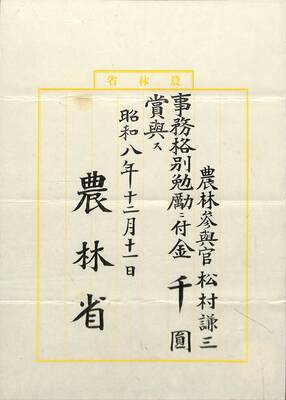 省林農
農林參與官 松村謙三
事務格別勉勵ニ付金千圓
賞與ス
昭和八年十二月十一日
農林省